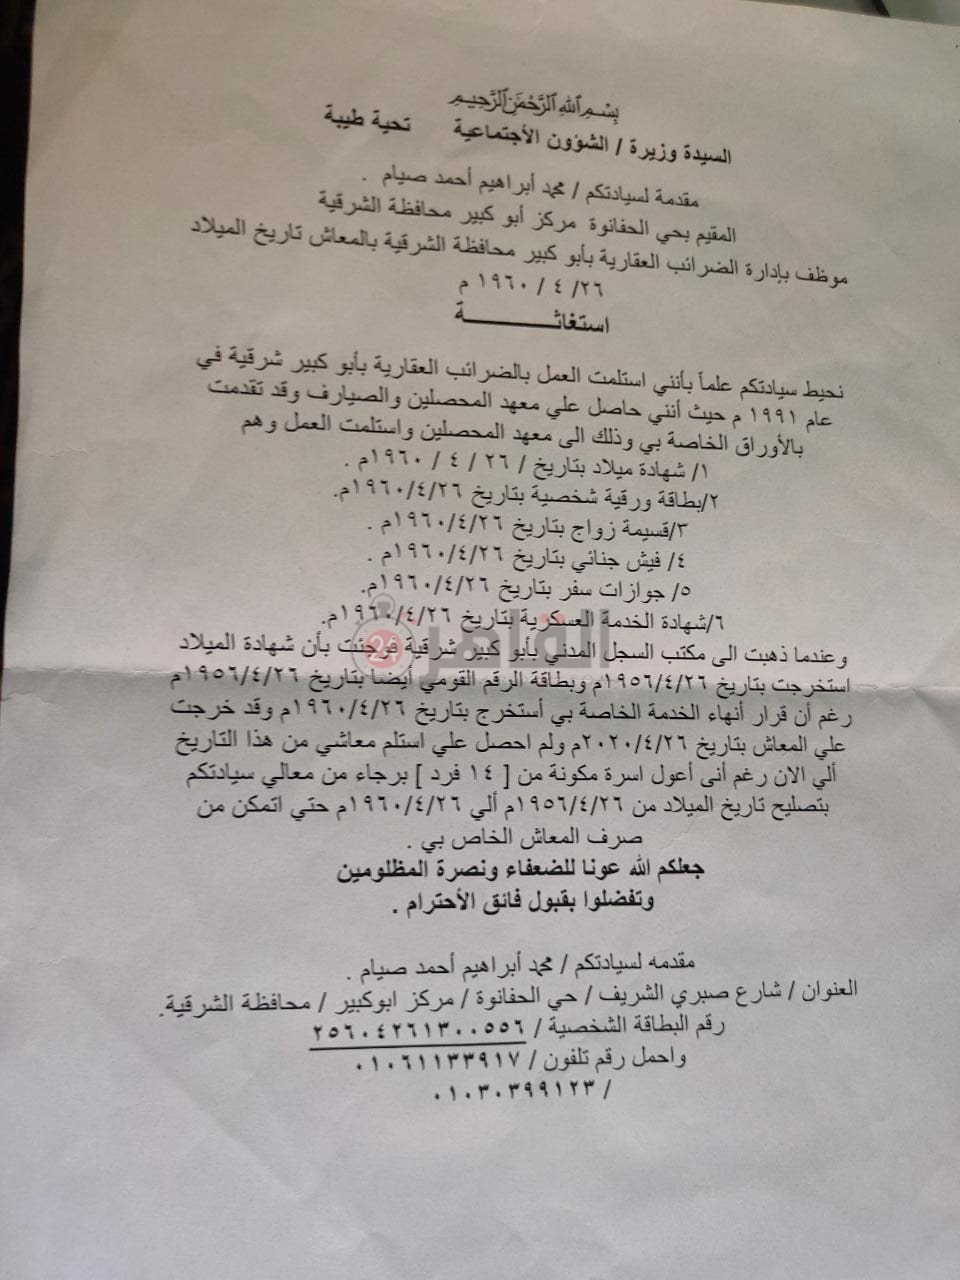 بسم الله الرحمن الرحيم
السيدة وزيرة / الشؤون الأجتماعية تحية طيبة
مقدمة لسيادتكم / محمد أبراهيم أحمد صيام .
المقيم بحي الحفانوة مركز أبو كبير محافظة الشرقية
موظف بإدارة الضرائب العقارية بأبو كبير محافظة الشرقية بالمعاش تاريخ الميلاد
٢٦/ ٤ / ١٩٦٠ م
استغاثـــــــــــة
نحيط سيادتكم علماً بأنني استلمت العمل بالضرائب العقارية بأبو كبير شرقية في
عام ١٩٩١ م حيث أنني حاصل علي معهد المحصلين والصيارف وقد تقدمت
بالأوراق الخاصة بي وذلك الى معهد المحصلين واستلمت العمل وهم
١/ شهادة ميلاد بتاريخ / ٢٦ / ٤ / ١٩٦٠م .
٢/بطاقة ورقية شخصية بتاريخ ١٩٦٠/٤/٢٦م.
٣/قسيمة زواج بتاريخ ١٩٦٠/٤/٢٦م .
٤/ فيش جنائي بتاريخ ١٩٦٠/٤/٢٦م .
٥/ جوازات سفر بتاريخ ١٩٦٠/٤/٢٦م.
٦/شهادة الخدمة العسكرية بتاريخ ١٩٦٠/٤/٢٦م.
القاهرة 24
وعندما ذهبت الى مكتب السجل المدني بأبو كبير شرقية فوجئت بأن شهادة الميلاد
استخرجت بتاريخ ١٩٥٦/٤/٢٦م وبطاقة الرقم القومي أيضا بتاريخ ١٩٥٦/٤/٢٦م
رغم أن قرار أنهاء الخدمة الخاصة بي أستخرج بتاريخ ١٩٦٠/٤/٢٦م وقد خرجت
علي المعاش بتاريخ ٢٠٢٠/٤/٢٦م ولم احصل علي استلم معاشي من هذا التاريخ
ألي الان رغم أنى أعول اسرة مكونة من [ ١٤ فرد ] برجاء من معالي سيادتكم
بتصليح تاريخ الميلاد من ١٩٥٦/٤/٢٦م ألي ١٩٦٠/٤/٢٦م حتي اتمكن من
صرف المعاش الخاص بي .
جعلكم الله عونا للضعفاء ونصرة المظلومين
وتفضلوا بقبول فائق الأحترام .
مقدمه لسيادتكم / محمد أبراهيم أحمد صيام .
العنوان / شارع صبري الشريف / حي الحفانوة / مركز ابوكبير / محافظة الشرقية.
رقم البطاقة الشخصية / ٢٥٦٠٤٢٦١٣٠٠٥٥٦
واحمل رقم تلفون / ٠١٠٦١١٣٣٩١٧
/ ٠١٠٣٠٣٩٩١٢٣